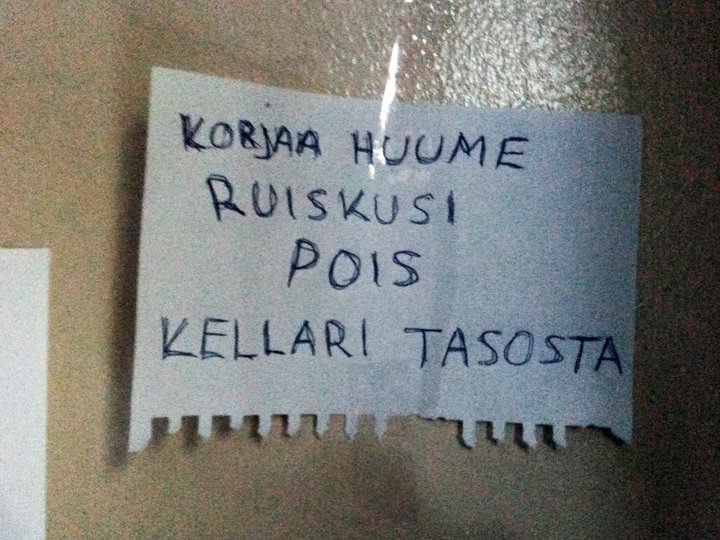 KORJAA HUUME
RUISKUSI
POIS
KELLARI TASOSTA